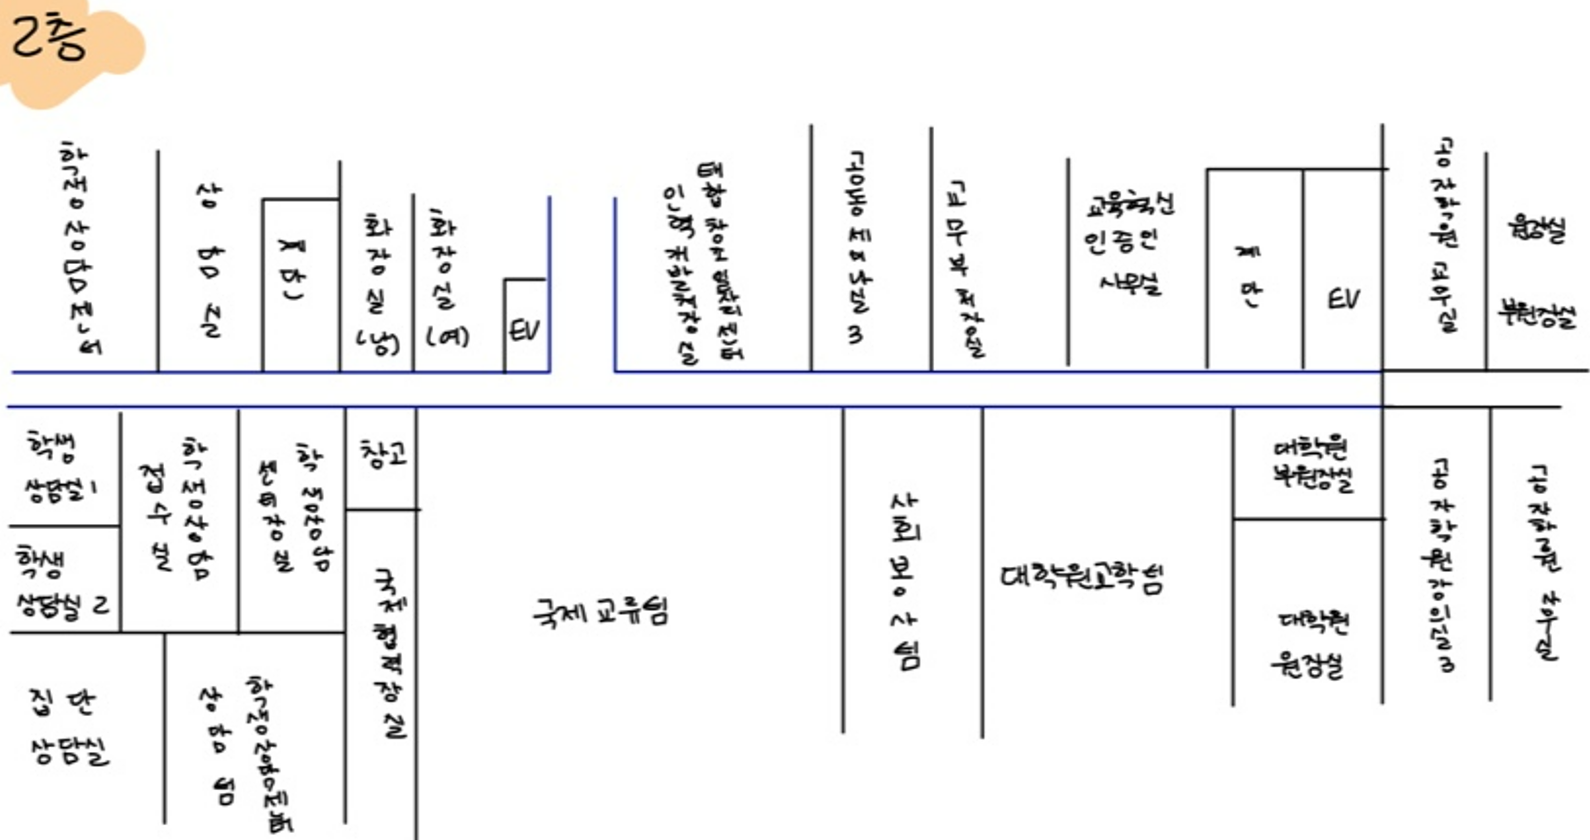 2층
학생상담센터
상담실
계단
화장실
(남)
화장실
(여)
EV
태합창의일자리센터
인력개발처장실
공동세미나실3
교무부처장실
교육혁신
인증원
사무실
계단
EV
공자학원 교무실
원장실
부원장실
학생
상담실1
학생
상담실2
학생상담
접수실
학생상담
센터장실
창고
국제협력처장실
국제교류팀
사회봉사팀
대학원교학팀
대학원
부원장실
대학원
원장실
공자학원강의실3
집단
상담실
학생상담센터
상담팀